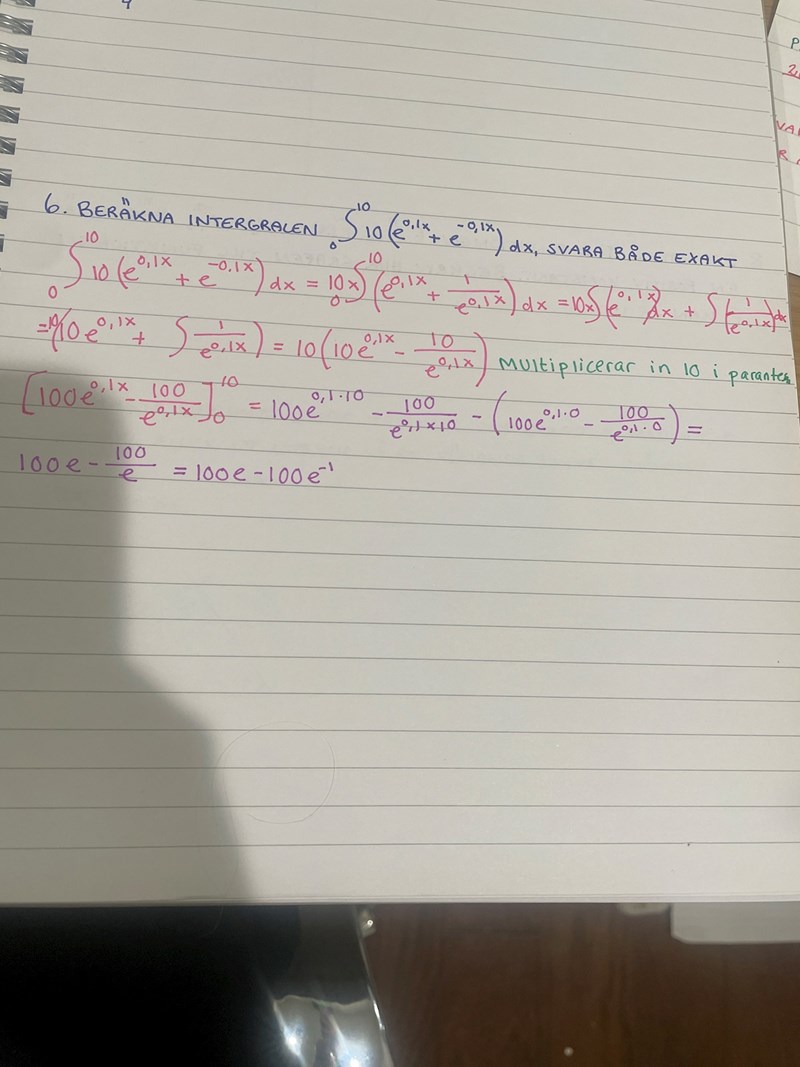 6. BERÄKNA INTERGRALEN ∫₀¹⁰ 10(e^0,1x + e^-0,1x) dx, SVARA BÅDE EXAKT
∫₀¹⁰ 10(e^0,1x + e^-0,1x) dx = 10x ∫₀¹⁰ (e^0,1x + 1/e^0,1x) dx = 10x ∫(e^0,1x) dx + ∫(1/e^0,1x) dx
= 10(10e^0,1x + ∫ 1/e^0,1x) = 10(10e^0,1x - 10/e^0,1x) Multiplicerar in 10 i parantes
[100e^0,1x - 100/e^0,1x]₀¹⁰ = 100e^0,1·10 - 100/e^0,1×10 - (100e^0,1·0 - 100/e^0,1·0) =
100e - 100/e = 100e - 100e^-1
P
2,
VAR
R